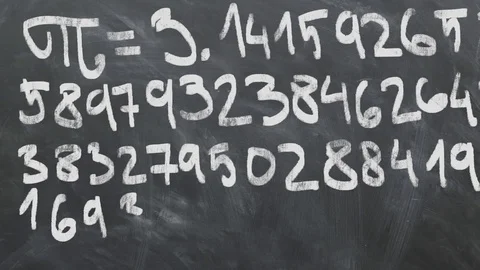 π = 3.14159265
58979323846264
38327950288419
169